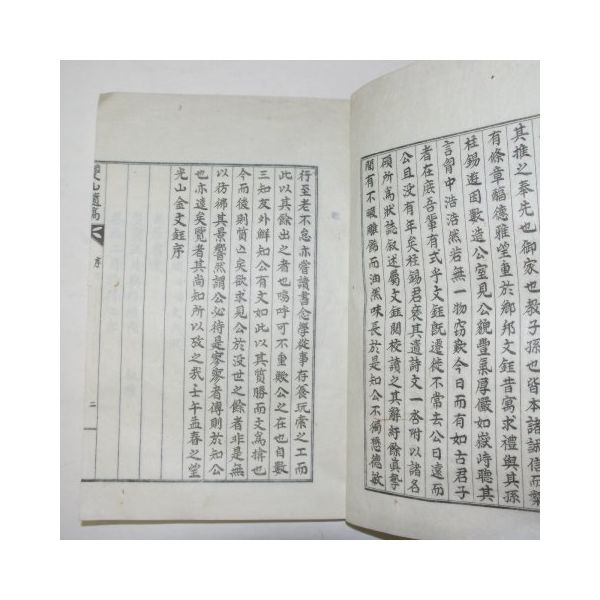 其推之奉先也御家也教子孫也皆本諸誠信而繫
有條章福德雅望重於鄉邦文鈺昔寓求禮與其孫
桂錫遊因數造公室見公貌豐氣厚儼如嶽峙聽其
言胷中浩浩然若無一物窃歎今日而有如古君子
者在庶吾輩有式乎文鈺旣遷徙不常去公日遠而
公且沒有年矣桂錫君裒其遺詩文一呇附以諸名
碩所爲狀誌敍述屬文鈺閱校讀之其辭紆餘眞摯
間有不暇雕餙而油然味長於是知公不獨懋德敏
行至老不怠亦嘗讀書念學從事存養玩索之工而
此以其餘出之者也嗚呼可不重歟公之在也自數
三知友外鮮知公有文如此以其質勝而文爲揜也
今而後則質亡矣欲求見公於沒世之餘者非是無
以彷彿其景響然謂公必待是寥寥者傳則於知公
也亦遠矣覽者其尚知所以攷之哉壬午孟春之望
光山金文鈺序
山遺稿
序
二